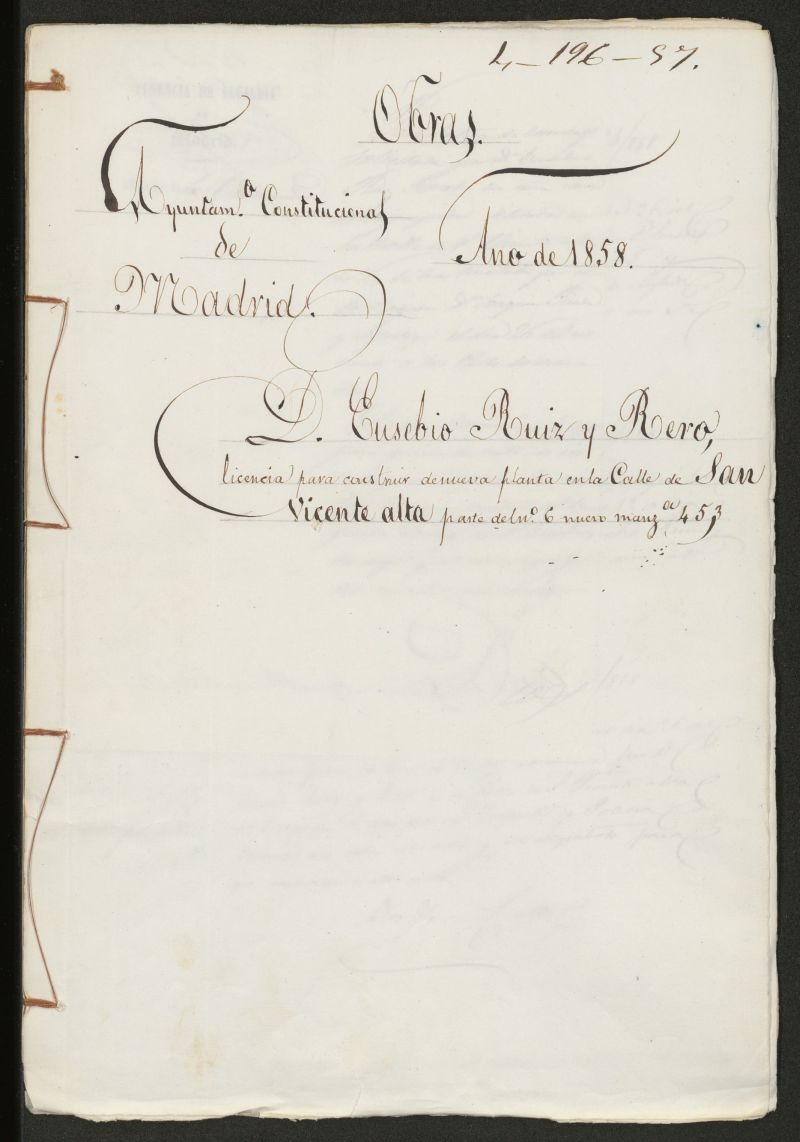 4-196-57.
Obras.
Ayuntam.º Constitucional
de
Madrid.
Año de 1858.
D. Eusebio Ruiz y Rero,
licencia para construir de nueva planta en la Calle de San
Vicente alta parte del nº. 6 nuevo manz.ª 453